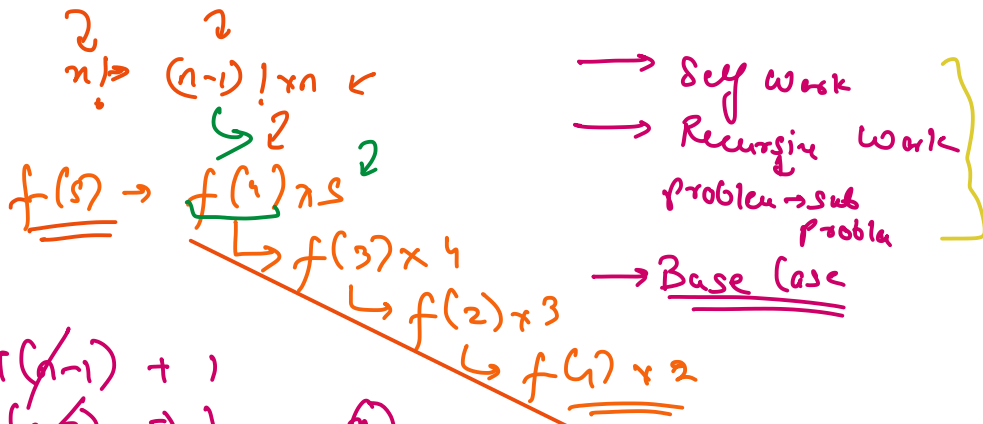 n! → (n-1)! xn ←
f(5) → f(4) x5
→ f(3) x 4
→ f(2) x 3
→ f(1) x 2
→ Self work
→ Recursive work
problem → sub
problem
→ Base Case
(n-1) + 1